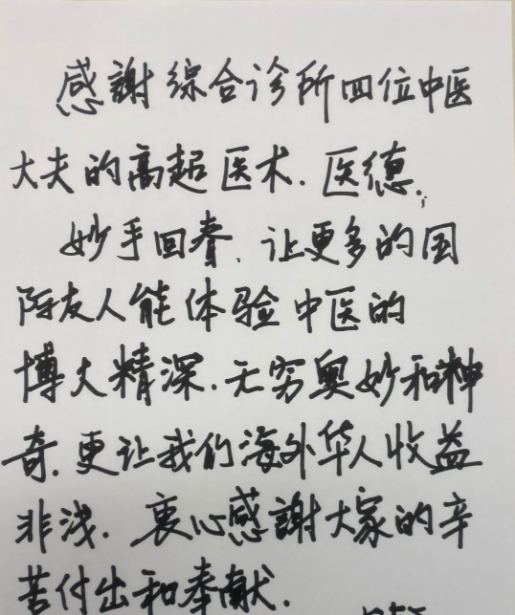 感謝综合诊所四位中医
大夫的高超医术.医德.
妙手回春、让更多的国
际友人能体验中医的
博大精深.无穷奥妙和神
奇.更让我们海外华人收益
非浅.衷心感謝大家的辛
苦付出和奉献.